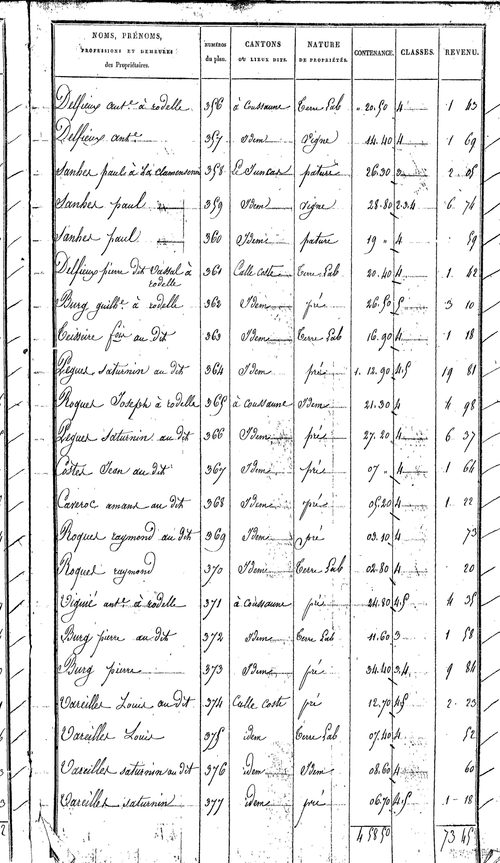 NOMS, PRÉNOMS, PROFESSIONS ET DEMEURES des Propriétaires. NUMÉROS du plan. CANTONS OU LIEUX DITS. NATURE DE PROPRIÉTÉS. CONTENANCE. CLASSES. REVENU.
Delfieux antne à rodelle 356 à Coussaune Terre Lab " 20.50 4 1 43
Delfieux antne 357 Idem Vigne 14.40 4 1 69
Sanhes paul à 358 Le Juncas pature 26.30 3 2 05
Sanhes paul 359 Idem Vigne 28.80 2.3.4 6 76
Sanhes paul 360 Idem pature 19 " 4 59
Delfieux pierre dit Vassal à rodelle 361 Calle Coste Terre Lab 20.40 4 1 42
Burg guille à rodelle 362 Idem pré 26.50 5 3 10
Teissire fois au dit 363 Idem Terre Lab 16.90 4 1 18
Pégues saturnin au dit 364 Idem pré 1. 12.90 4.5 19 81
Roques Joseph à rodelle 365 à Coussaune Idem 21.30 4 4 98
Pégues saturnin au dit 366 Idem pré 27.20 4 6 37
Costes Jean au dit 367 Idem pré 07 " 4 1 64
Caveroc amans au dit 368 Idem pré 05.20 4 1 22
Roques raymond au dit 369 Idem pré 03.10 4 73
Roques raymond 370 Idem Terre Lab 02.80 4 20
Viguié antne à rodelle 371 à Coussaune pré 24.80 4.5 4 35
Burg pierre au dit 372 Idem Terre Lab 11.60 3 1 58
Burg pierre 373 Idem pré 34.40 3.4. 9 84
Vareilles Louis au dit 374 Calle Coste pré 12.70 4.5 2 23
Vareilles Louis 375 idem Terre Lab 07.40 4 52
Vareilles saturnin au dit 376 idem Idem 08.60 4 60
Vareilles saturnin 377 idem pré 06.70 4.5 1 18
4 58 50 73 45